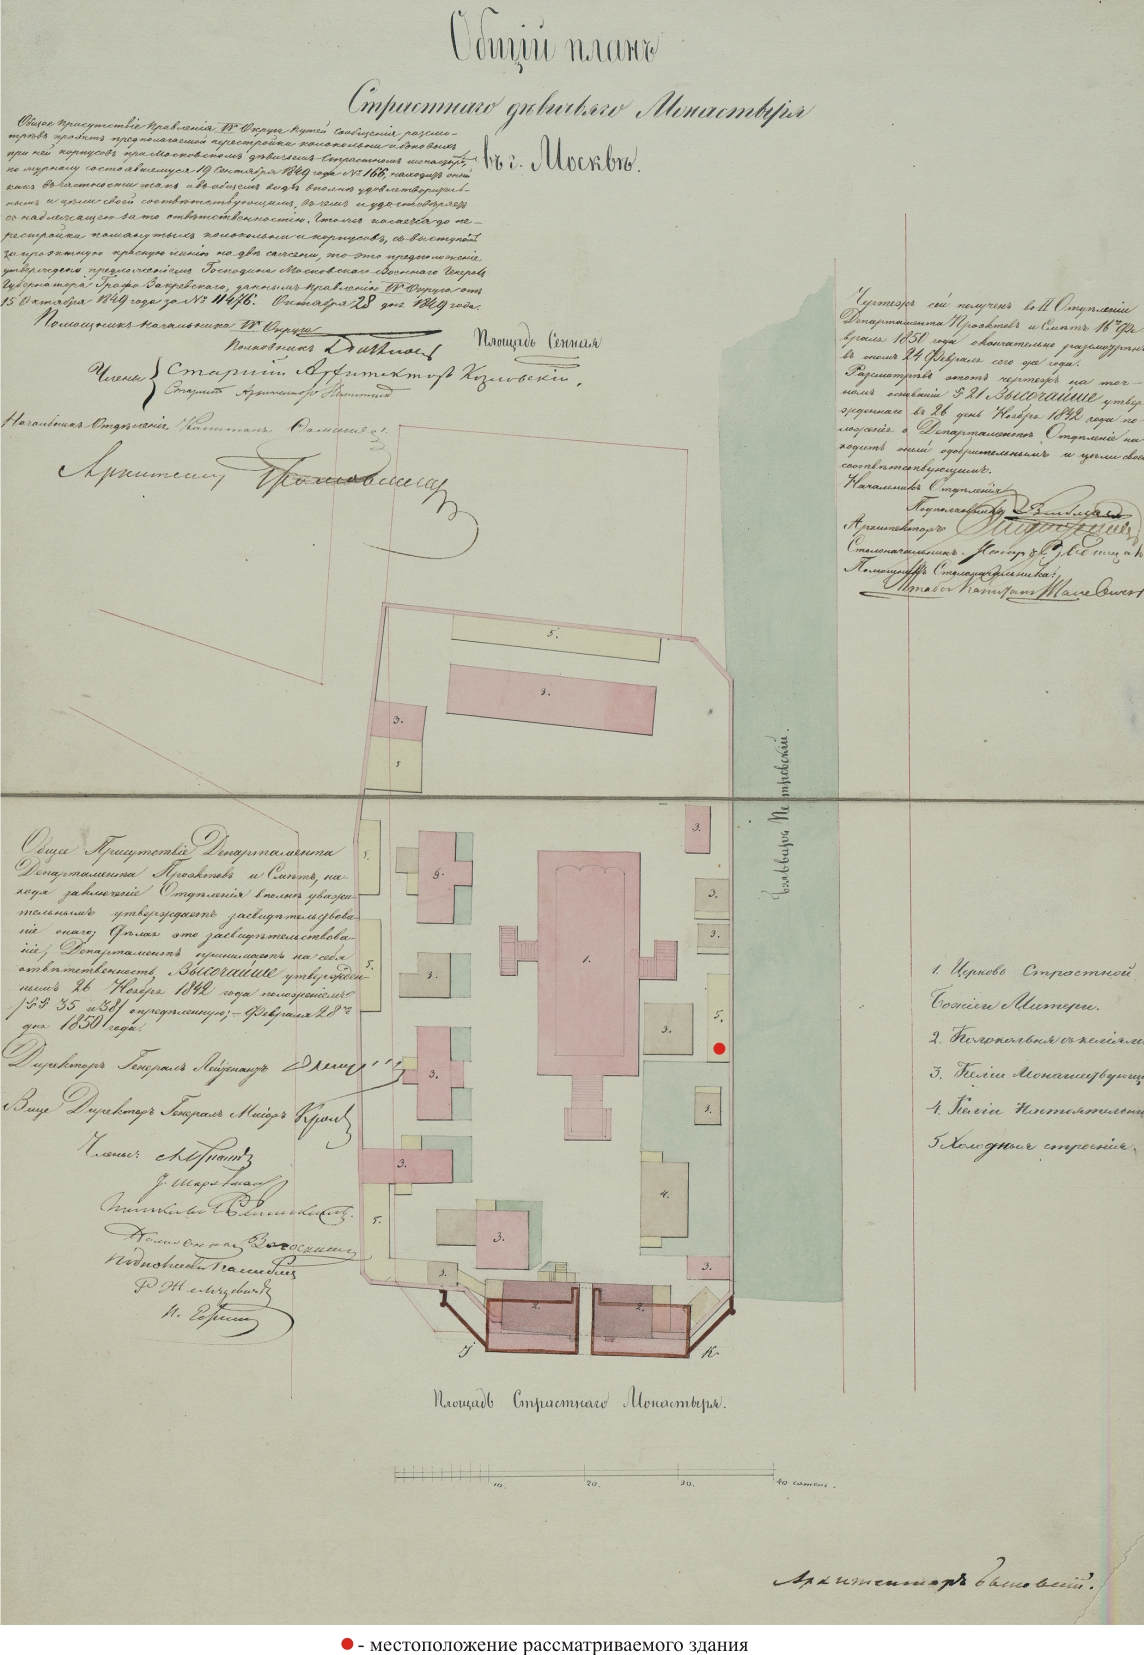 Общій планъ
Страстнаго дѣвичьяго Монастыря
въ г. Москвѣ.
Общее присутствіе Правленія IV Округа путей сообщенія разсмо-
трѣвъ проэктъ предполагаемой перестройки колокольни и боковыхъ
при ней корпусовъ при Московскомъ дѣвичьемъ Страстномъ монастырѣ,
по журналу состоявшемуся 19 Сентября 1849 года № 166, находитъ оный
какъ въ частности такъ и въ общемъ видѣ вполнѣ удовлетворитель-
нымъ и цѣли своей соотвѣтствующимъ, въ чемъ и удостовѣряетъ
съ надлежащею за то отвѣтственностію. Что же касается до пе-
рестройки помянутыхъ колокольни и корпусовъ, съ выступомъ
за проэктную красную линію на двѣ сажени, то это предположеніе
утверждено предложеніемъ Господина Московскаго Военнаго Генералъ
Губернатора Графа Закревскаго, даннымъ Правленію IV Округа отъ
15 Октября 1849 года за № 11476. Октября 28 дня 1849 года.
Помощникъ Начальника IV Округа
Полковникъ
Члены
Старшій Архитекторъ Козловскій.
Старшій Архитекторъ
Начальникъ Отдѣленія Капитанъ
Архитекторъ
Площадь Сенная
Чертежъ сей полученъ во II Отдѣленіи
Департамента Проэктовъ и Смѣтъ 16го Фе-
враля 1850 года окончательно разсмотрѣнъ
въ ономъ 24 Февраля сего же года.
Разсмотрѣвъ этотъ чертежъ на точ-
номъ основаніи § 21 Высочайше утвер-
жденнаго въ 26 день Ноября 1842 года по-
ложенія о Департаментѣ, Отдѣленіе на-
ходитъ оный одобрительнымъ и цѣли своей
соотвѣтствующимъ.
Начальникъ Отдѣленія
Подполковникъ
Архитекторъ
Столоначальникъ
Помощникъ Столоначальника
Штабсъ Капитанъ
5.
3.
3.
5
Бульваръ Петровскій.
Общее Присутствіе Департамента
Департамента Проэктовъ и Смѣтъ, на-
ходя заключеніе Отдѣленія вполнѣ уважи-
тельнымъ утверждаетъ засвидѣтельствова-
ніе онаго; Дѣлая это засвидѣтельствова-
ніе, Департаментъ принимаетъ на себя
отвѣтственность, Высочайше утвержден-
нымъ 26 Ноября 1842 года положеніемъ
/§§ 35 и 38/ опредѣленную; – Февраля 28го
дня 1850 года.
Директоръ Генералъ Лейтенантъ
Вице Директоръ Генералъ Маіоръ
Члены:
5.
3.
3.
3.
3.
5.
3.
1.
3.
5.
3.
3.
3.
4.
5.
3.
3.
3.
2.
2.
К.
1. Церковь Страстной
Божіей Матери.
2. Колокольня съ келіями
3. Келіи Монашествующихъ
4. Келіи Настоятельницы
5 Холодныя строенія.
Площадь Страстнаго Монастыря.
10. 20. 30. 40 сажень.
Архитекторъ Быковскій.
- местоположение рассматриваемого здания